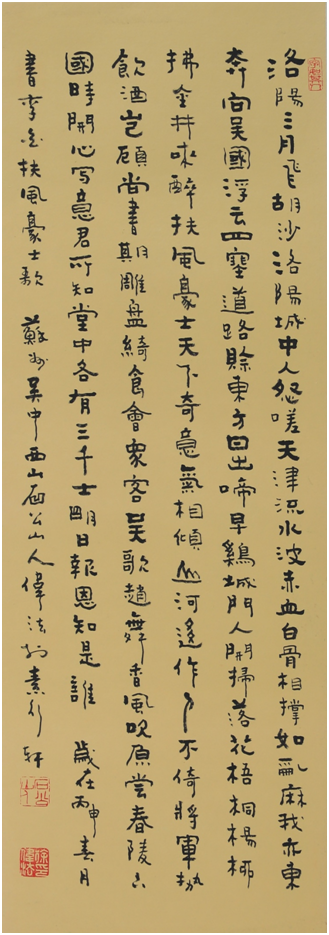 洛陽三月飛胡沙洛陽城中人怨嗟天津流水波赤血白骨相撐如亂麻我亦東
奔向吳國浮云四塞道路賒東方日出啼早鷄城門人開掃落花梧桐楊柳
拂金井來醉扶風豪士天下奇意氣相傾山河作人不倚將軍
飲酒岂顧尚書期雕盤綺食會衆客吳歌趙舞香風吹原嘗春陵六
國時開心写意君所知堂中各有三千士明日報恩知是誰 歲在丙申春月
書李白扶風豪士歌 蘇州吳中西山石公山人偉法於素行軒